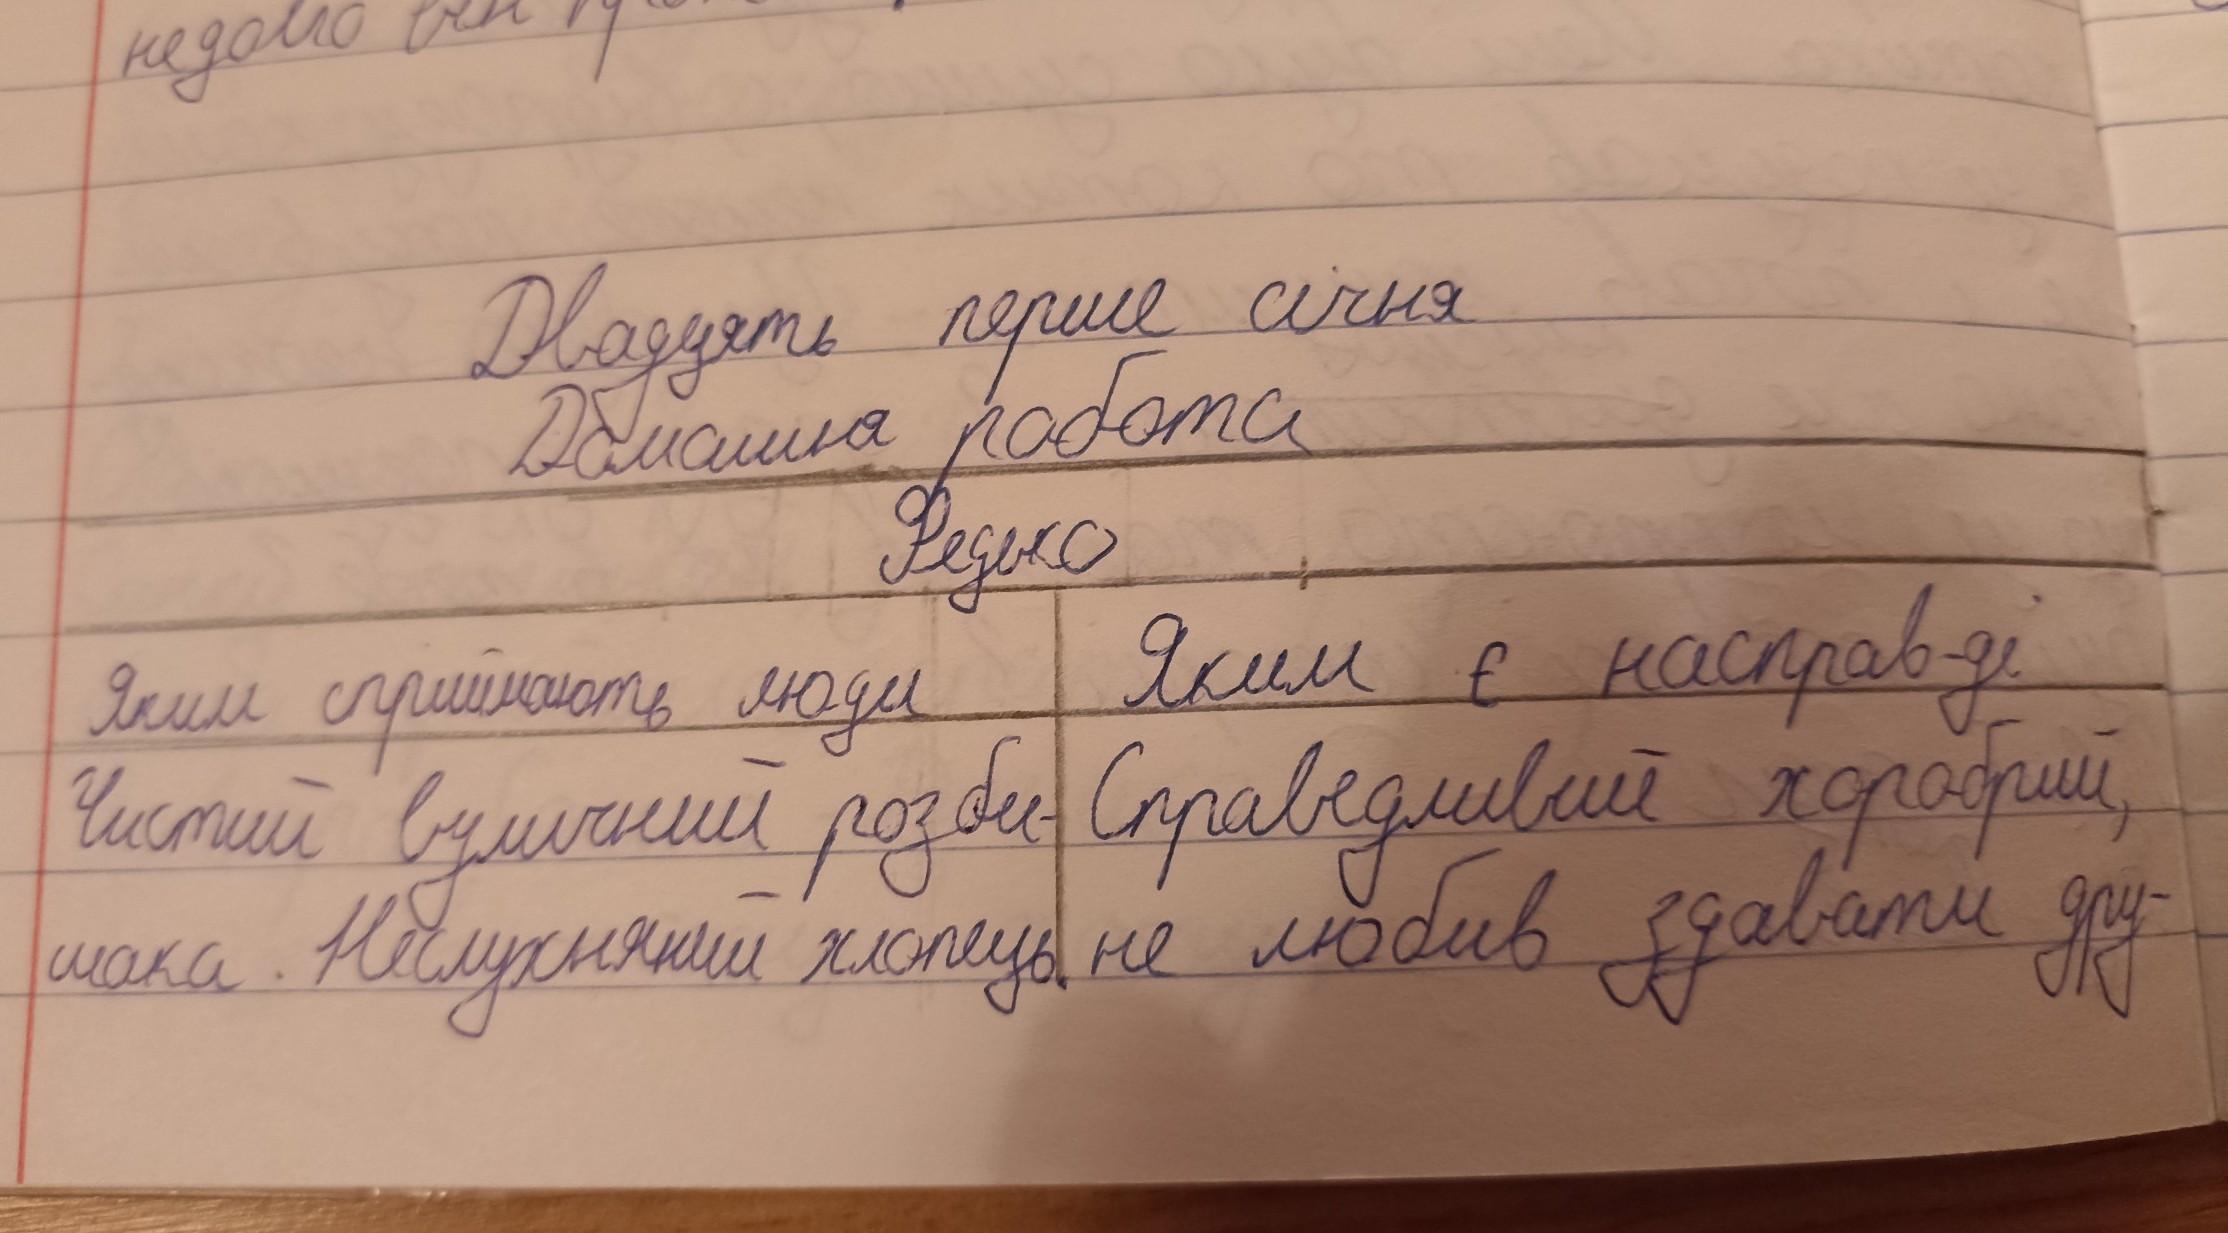 недовго він
Двадцять перше січня
Домашня робота
Федько
Яким сприймають люди
Яким є насправ-ді
Чистий вуличний розби-
шака. Неслухняний хлопець.
Справедливий хоробрий,
не любив здавати дру-